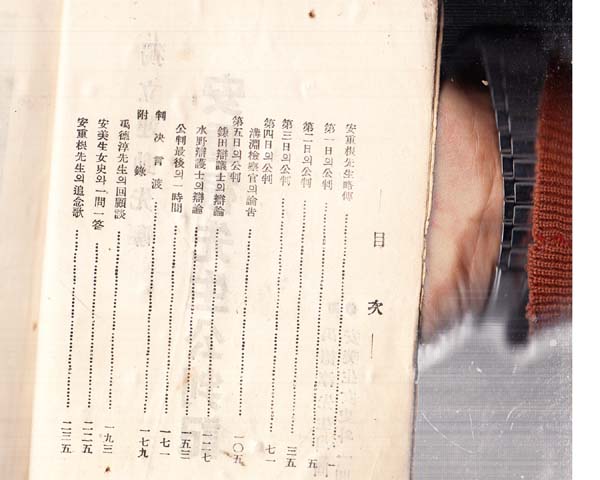 目次
安重根先生略傳……一
第一日의公判……五
第二日의公判……三五
第三日의公判……七一
第四日의公判
溝淵檢察官의論告……一〇五
第五日의公判
鎌田辯護士의辯論……一二七
水野辯護士의辯論……一五三
公判最後의一時間……一七一
判決言渡……一七九
附錄
禹德淳先生의回顧談……一九三
安美生女史와一問一答……二二五
安重根先生의追念歌……二三五